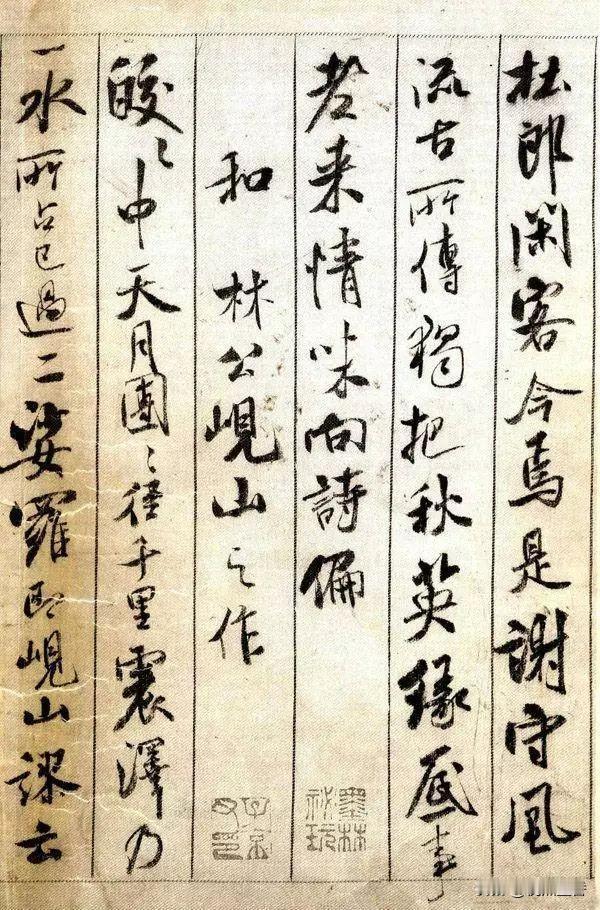 杜郎閑客今焉是謝守風
流古所傳獨把秋英緣底事
老来情味向詩偏
和 林公峴山之作
皎々中天月團々徑千里震澤乃
一水所占已過二娑羅即峴山謬云
墨林祕玩
子京父印